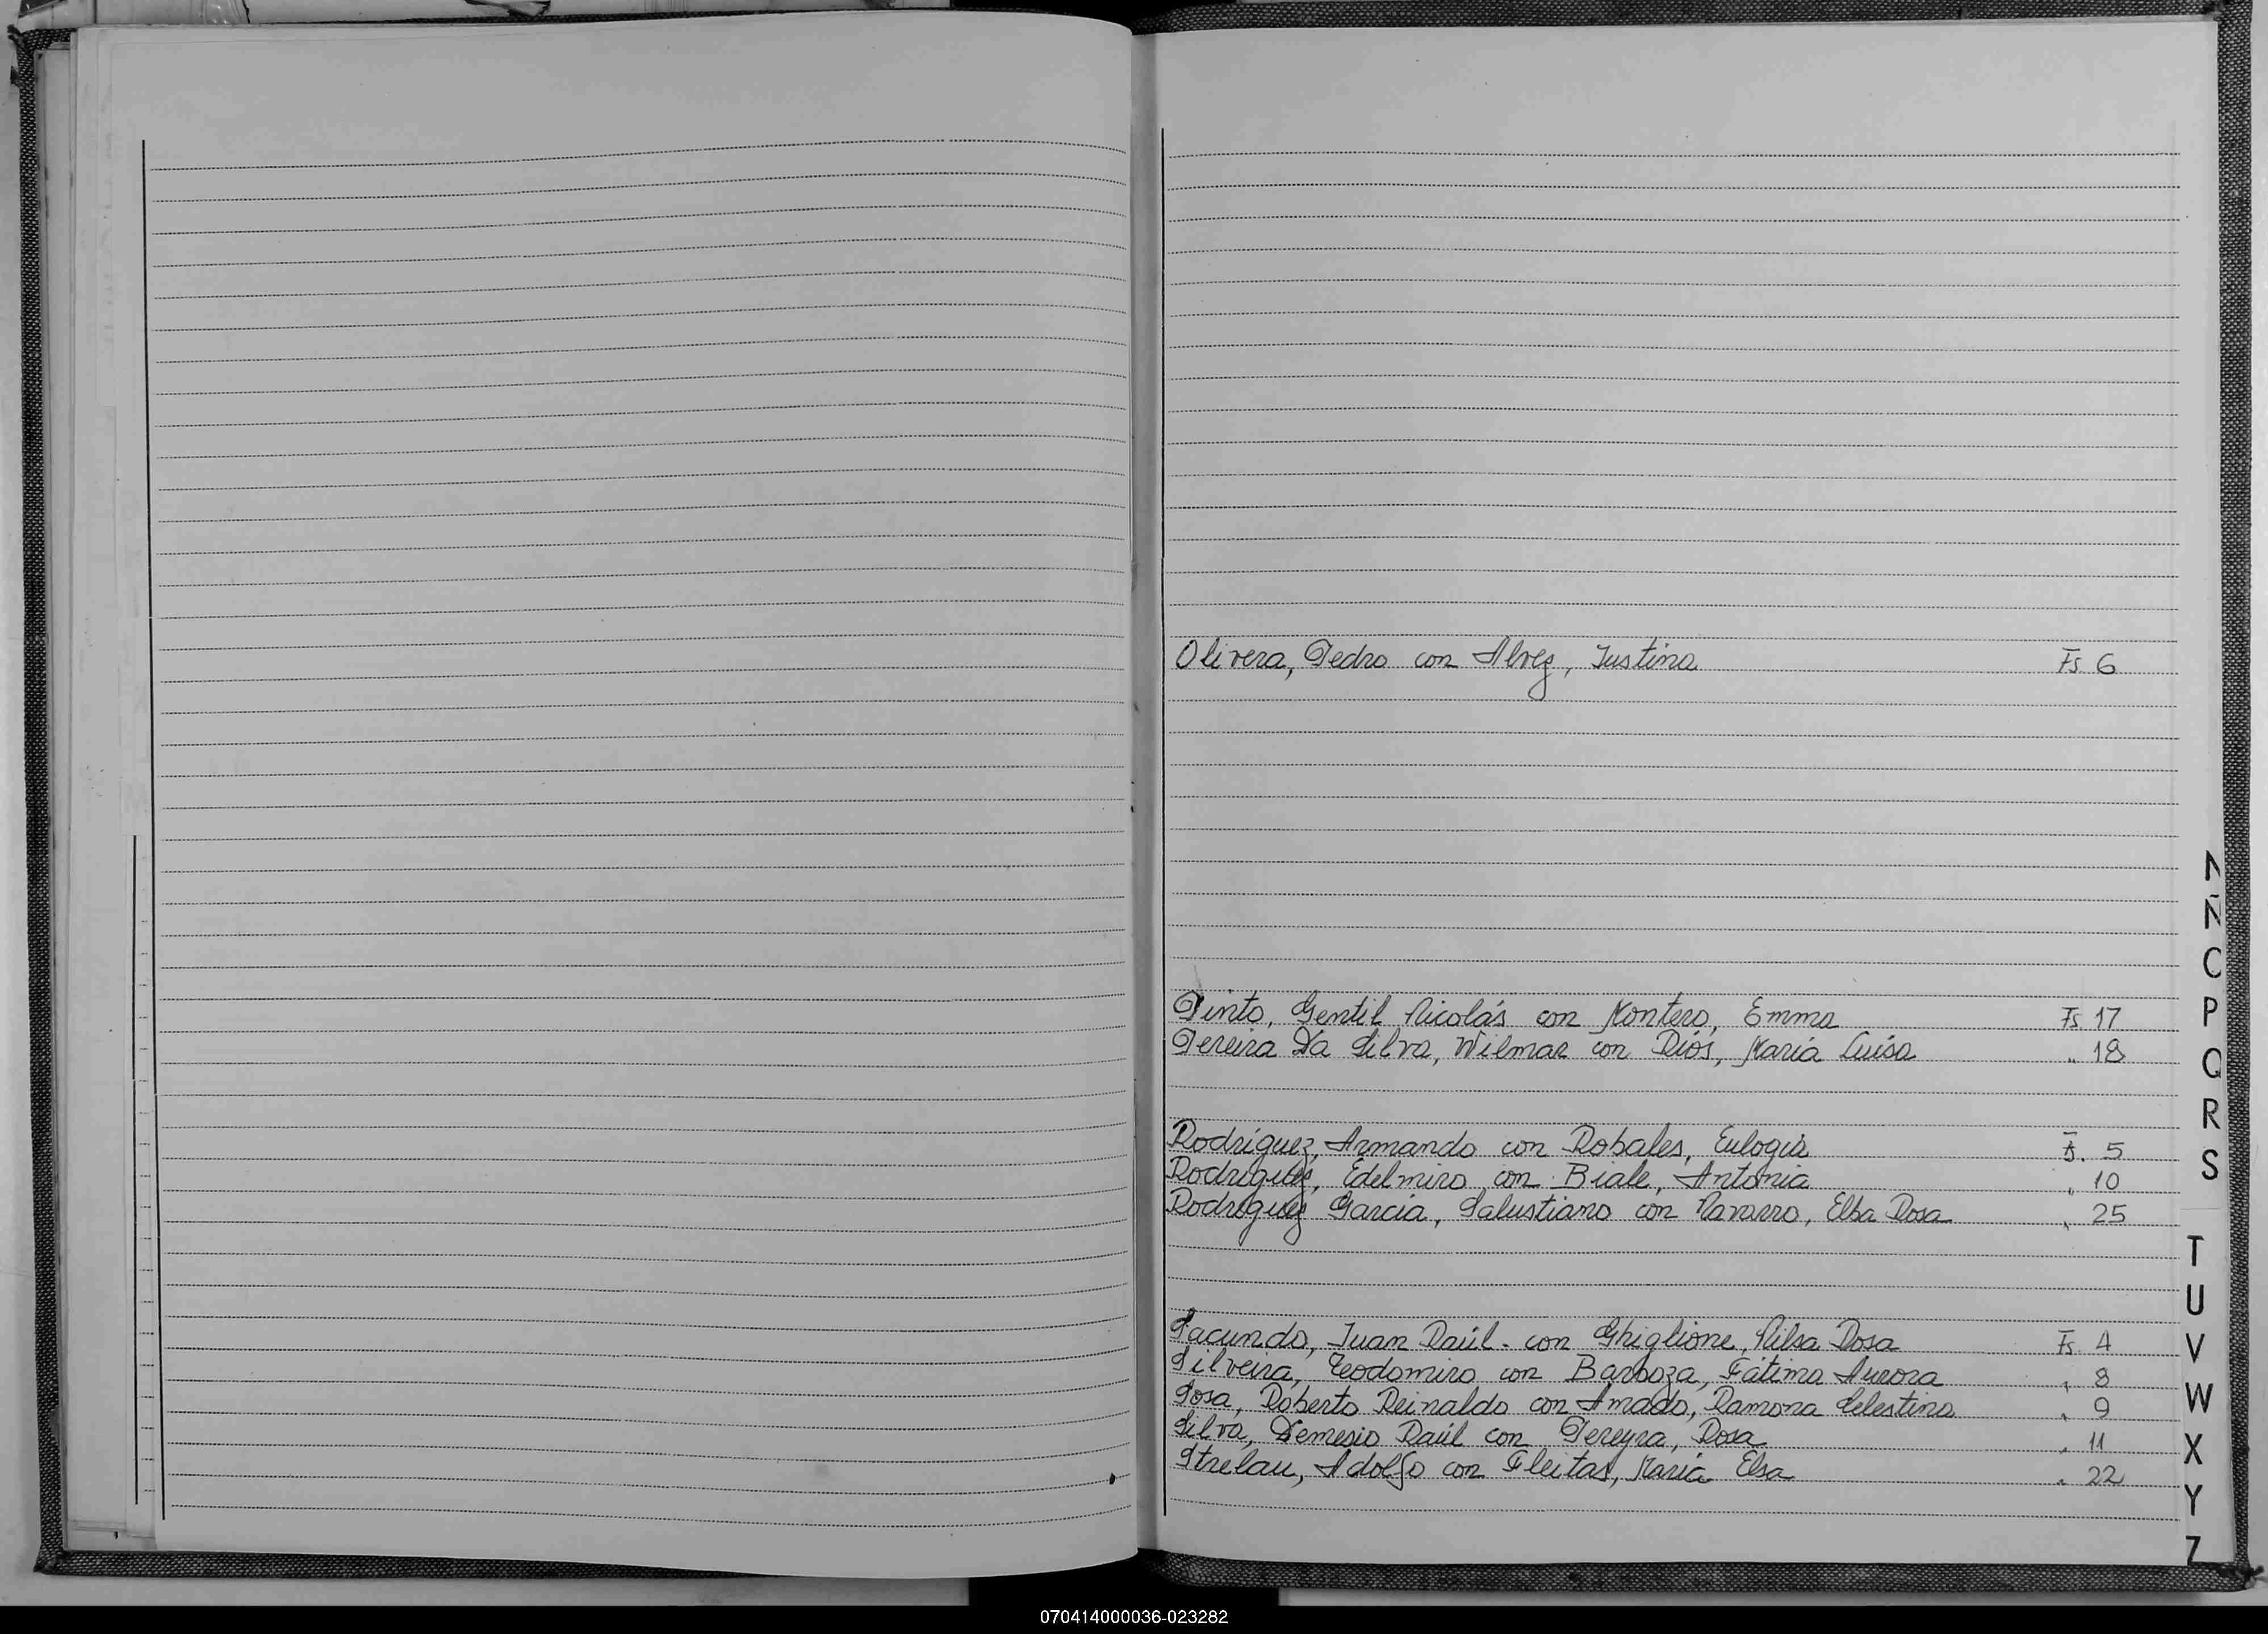 Olivera, Pedro con Alvez, Justina Fs. 6
N
Ñ
O
Pinto, Gentil Nicolás con Montero, Emma Fs. 17
P
Pereira Da Silva, Wilmar con Dios, María Luisa " 18
Q
R
Rodríguez, Armando con Robales, Eulogia Fs. 5
S
Rodríguez, Edelmiro con Biale, Antonia " 10
Rodríguez García, Salustiano con Navarro, Elba Rosa " 25
T
U
Sacundo, Juan Raúl - con Ghiglione, Nilsa Rosa Fs. 4
V
Silveira, Teodomiro con Barboza, Fátima Aurora " 8
W
Sosa, Roberto Reinaldo con Amado, Ramona Celestina " 9
Silva, Nemesio Raúl con Pereyra, Rosa " 11
X
Strelau, Adolfo con Fleitas, María Elsa " 22
Y
Z
070414000036-023282